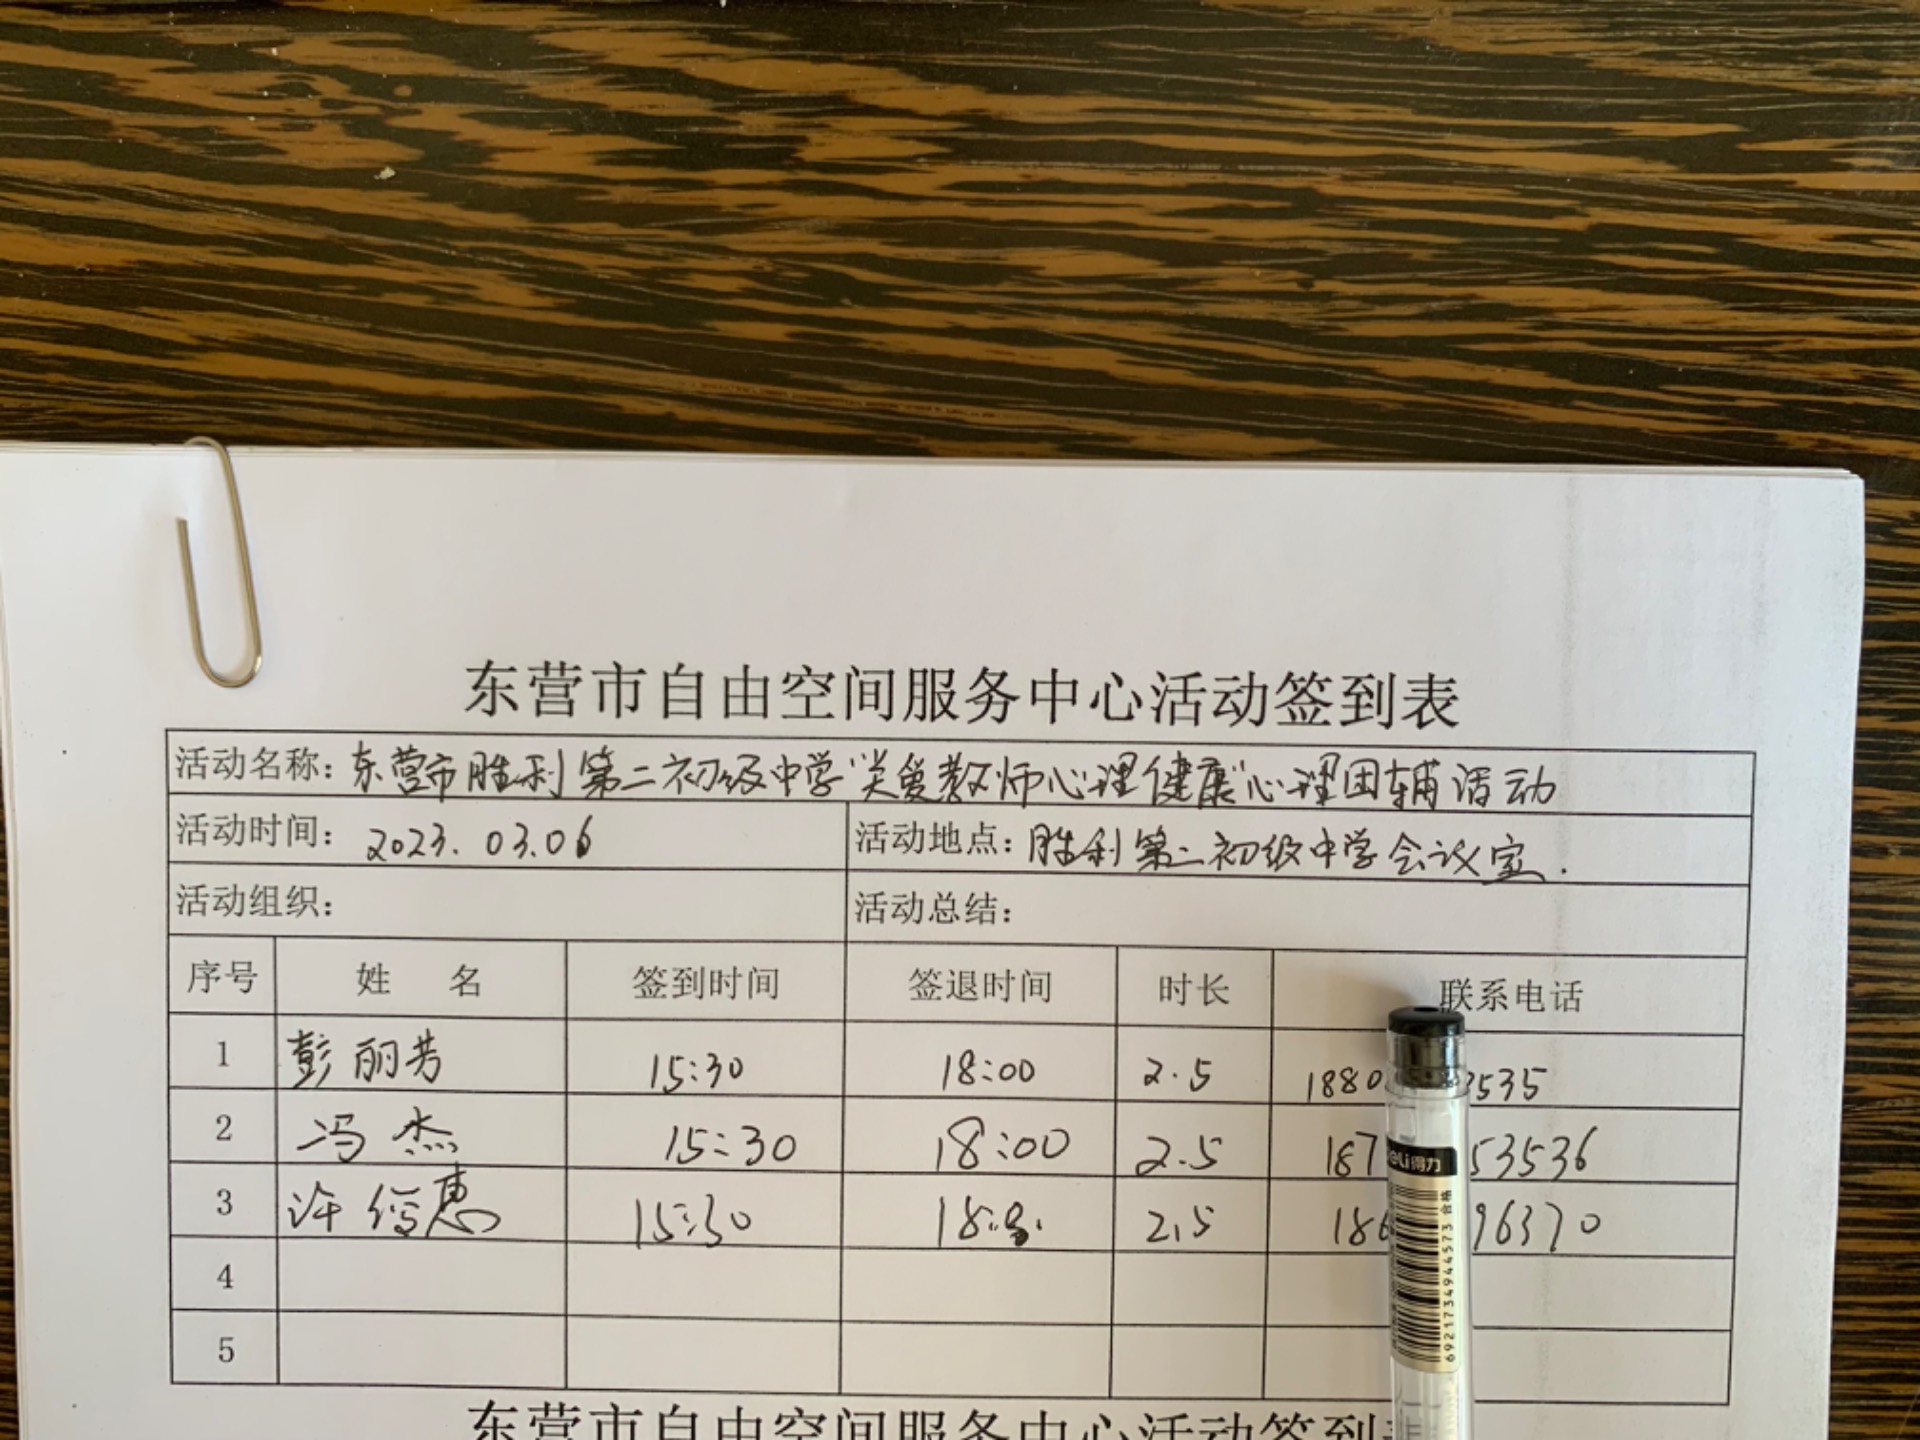 东营市自由空间服务中心活动签到表
活动名称：东营市胜利第二初级中学“关爱教师心理健康”心理团辅活动
活动时间：2023.03.06 活动地点：胜利第二初级中学会议室.
活动组织： 活动总结：
序号 姓 名 签到时间 签退时间 时长 联系电话
1 彭丽芳 15:30 18:00 2.5 1880 3535
2 冯杰 15:30 18:00 2.5 187 53536
3 许 惠 15:30 2.5 186 96370
4
5
deli得力
合格
6921734944573
东营市自由空间服务中心活动签到表